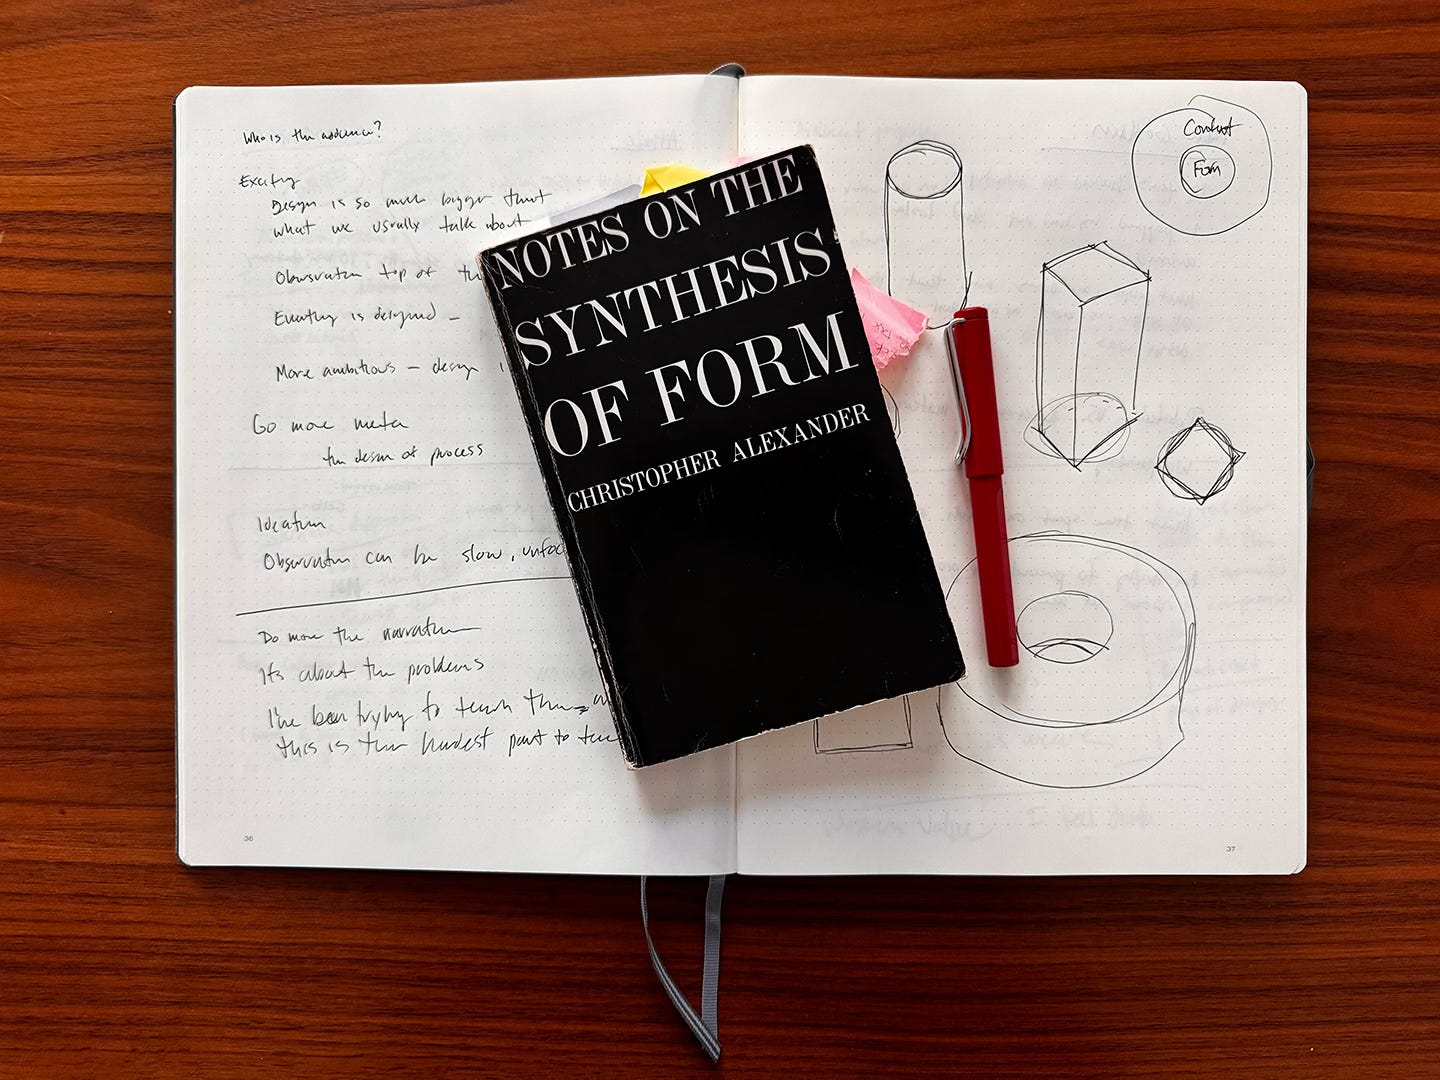 Who is the audience?
Exciting
Design is so much bigger that
what we usually talk about
Observation top of
Everything is designed –
More ambitious – design
Go more meta
the design of process
Ideation
Observation can be slow, unfoc
Do more the narrative
It's about the problems
I've been trying to teach
this is the hardest part to
36
NOTES ON THE
SYNTHESIS
OF FORM
CHRISTOPHER ALEXANDER
Context
Form
37